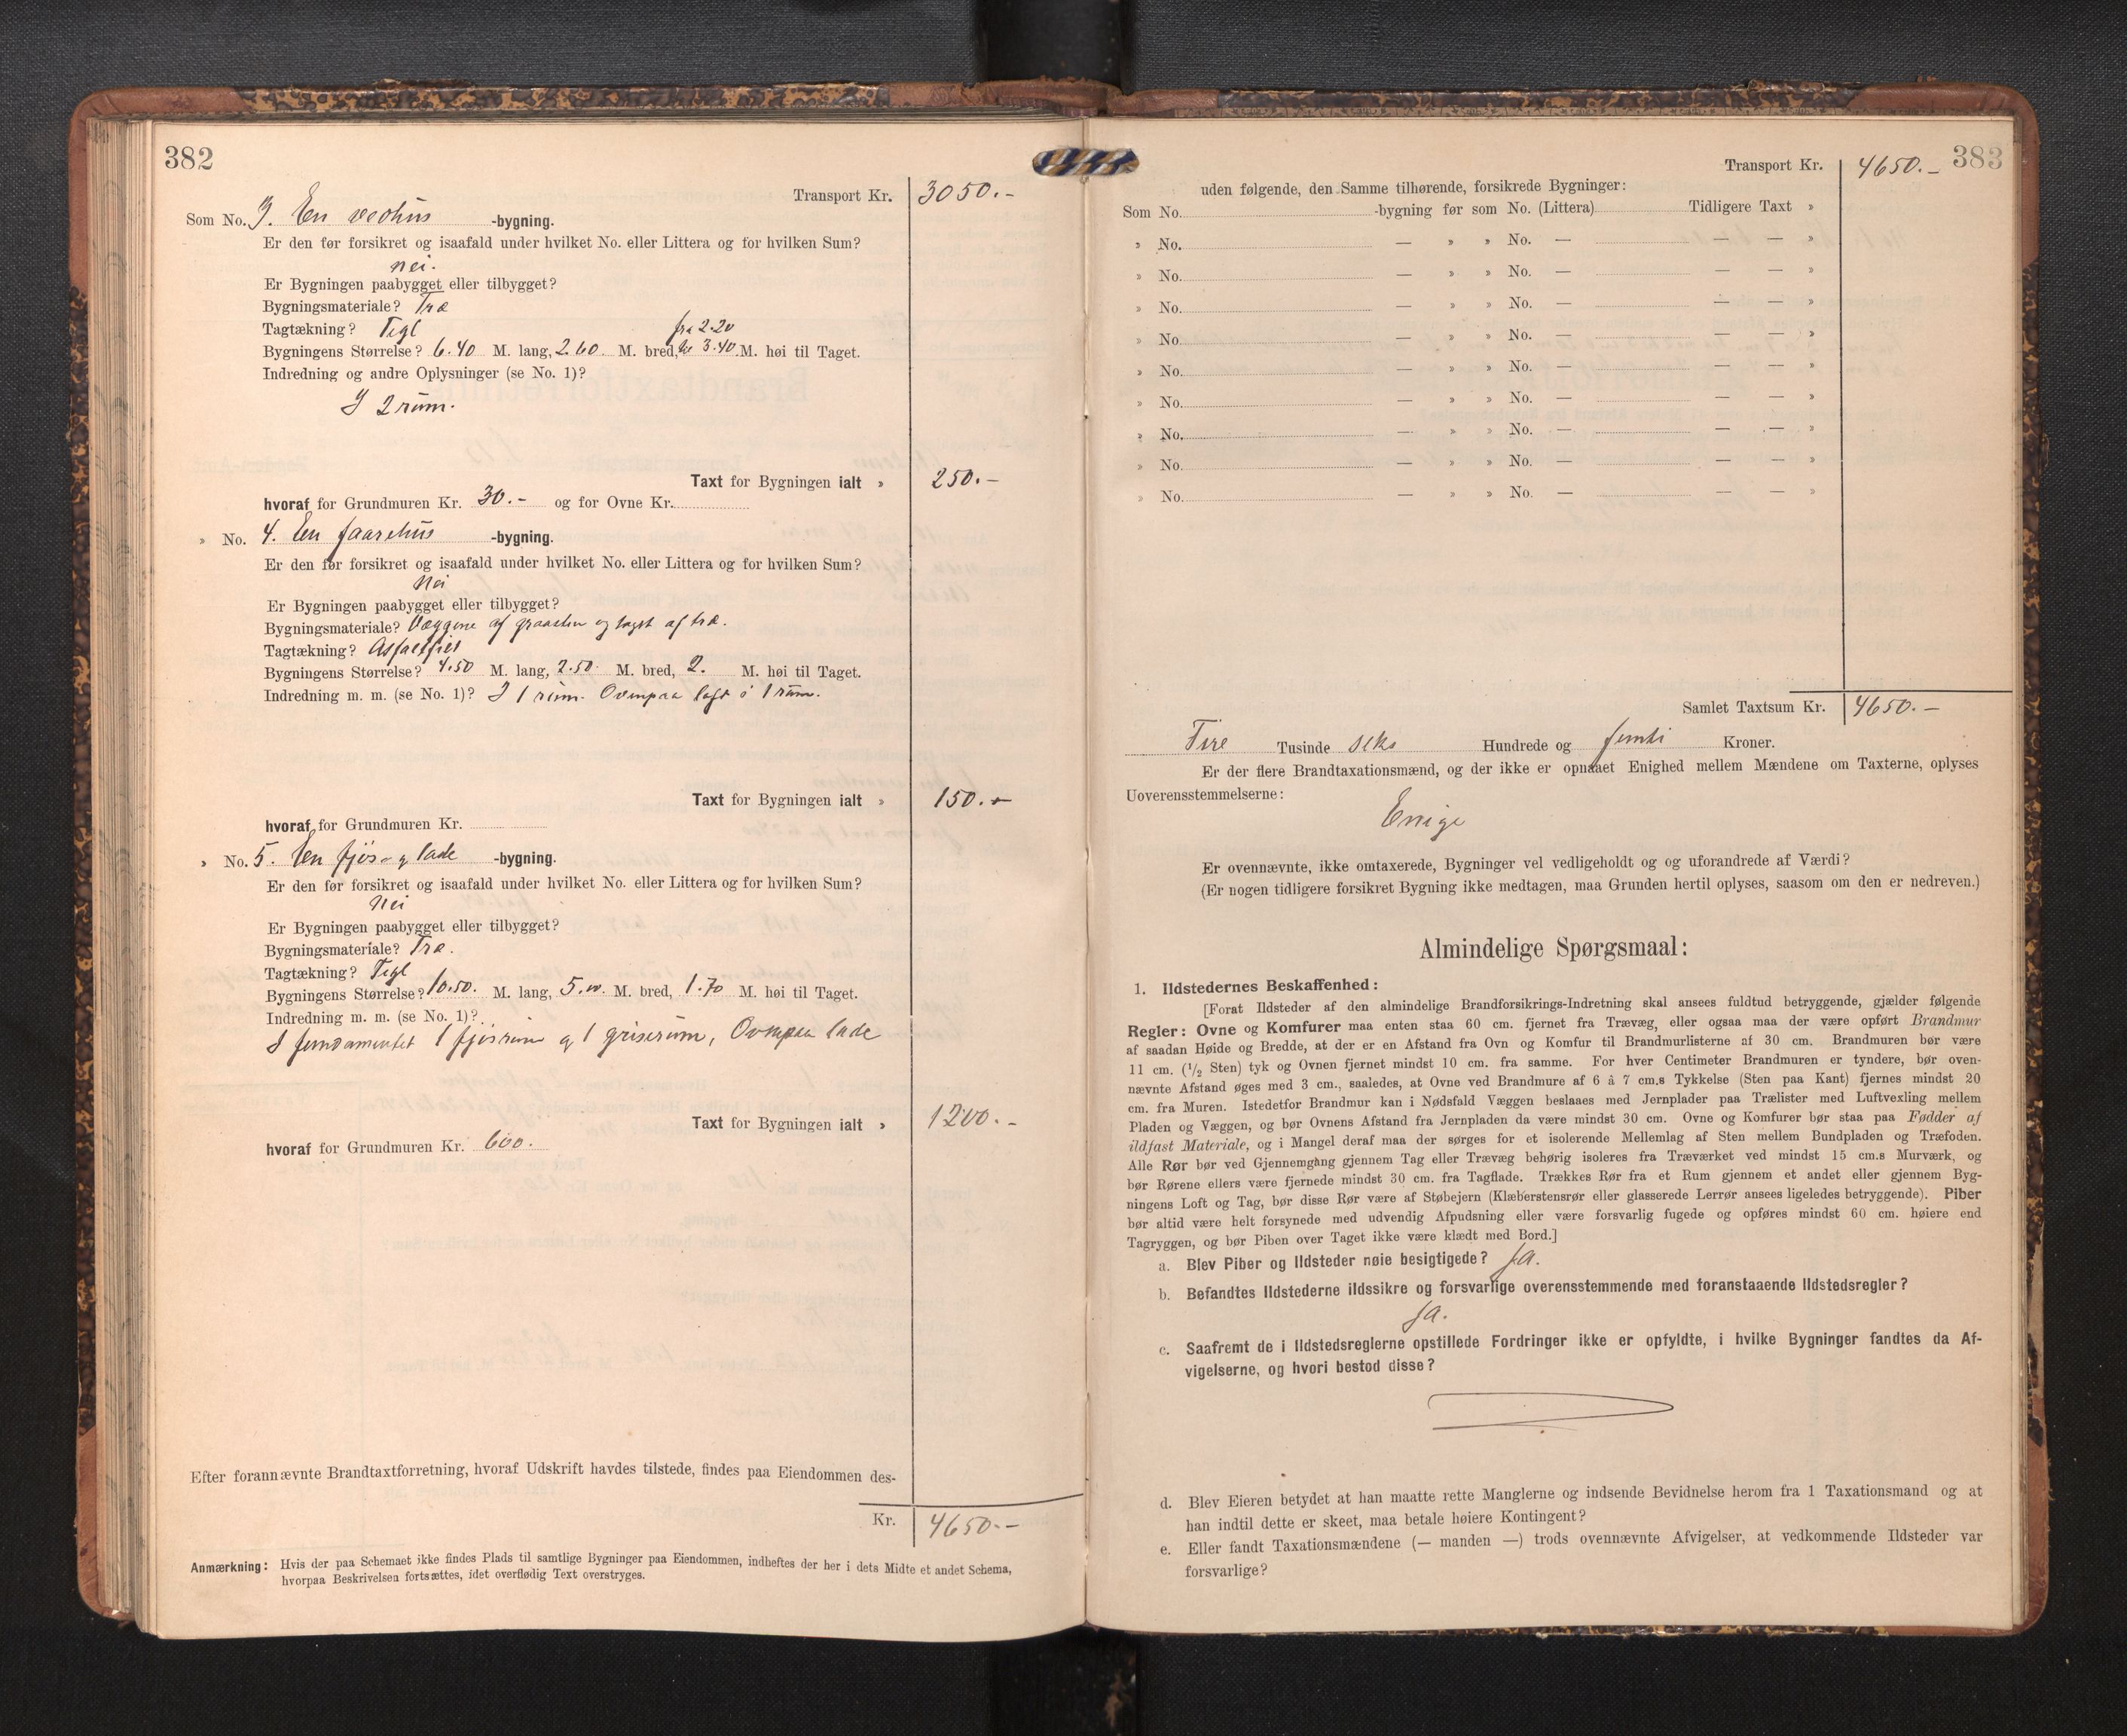 382
Transport Kr. 3050.-
Som No. 3. En vedhus -bygning.
Er den før forsikret og isaafald under hvilket No. eller Littera og for hvilken Sum?
nei.
Er Bygningen paabygget eller tilbygget?
Bygningsmateriale? Træ
Tagtækning? Tegl fra 2.20
Bygningens Størrelse? 6.40 M. lang, 2.60 M. bred, til 3.40 M. høi til Taget.
Indredning og andre Oplysninger (se No. 1)?
I 2 rum.
Taxt for Bygningen ialt » 250.-
hvoraf for Grundmuren Kr. 30.- og for Ovne Kr.
» No. 4. En faarehus -bygning.
Er den før forsikret og isaafald under hvilket No. eller Littera og for hvilken Sum?
Nei
Er Bygningen paabygget eller tilbygget?
Bygningsmateriale? Væggene af graasten og taget af træ.
Tagtækning? Asfaltfilt
Bygningens Størrelse? 4.50 M. lang, 2.50 M. bred, 2. M. høi til Taget.
Indredning m. m. (se No. 1)? I 1 rum. Ovenpaa lagt i 1 rum.
Taxt for Bygningen ialt » 150.-
hvoraf for Grundmuren Kr.
» No. 5. En fjøs- og lade -bygning.
Er den før forsikret og isaafald under hvilket No. eller Littera og for hvilken Sum?
Nei
Er Bygningen paabygget eller tilbygget?
Bygningsmateriale? Træ.
Tagtækning? Tegl
Bygningens Størrelse? 10.50. M. lang, 5.00. M. bred, 1.70 M. høi til Taget.
Indredning m. m. (se No. 1)?
I fundamentet 1 fjøsrum og 1 griserum, Ovenpaa lade
Taxt for Bygningen ialt » 1200.-
hvoraf for Grundmuren Kr. 600.
Efter forannævnte Brandtaxtforretning, hvoraf Udskrift havdes tilstede, findes paa Eiendommen des-
Kr. 4650.-
Anmærkning: Hvis der paa Schemaet ikke findes Plads til samtlige Bygninger paa Eiendommen, indheftes der her i dets Midte et andet Schema,
hvorpaa Beskrivelsen fortsættes, idet overflødig Text overstryges.
383
Transport Kr. 4650.-
uden følgende, den Samme tilhørende, forsikrede Bygninger:
Som No. -bygning før som No. (Littera) Tidligere Taxt »
» No. — » » No. — — — »
» No. — » » No. — — — »
» No. — » » No. — — — »
» No. — » » No. — — — »
» No. — » » No. — — — »
» No. — » » No. — — — »
» No. — » » No. — — — »
» No. — » » No. — — — »
» No. — » » No. — — — »
Samlet Taxtsum Kr. 4650.-
Fire Tusinde seks Hundrede og femti Kroner.
Er der flere Brandtaxationsmænd, og der ikke er opnaaet Enighed mellem Mændene om Taxterne, oplyses
Uoverensstemmelserne:
Enige
Er ovennævnte, ikke omtaxerede, Bygninger vel vedligeholdt og og uforandrede af Værdi?
(Er nogen tidligere forsikret Bygning ikke medtagen, maa Grunden hertil oplyses, saasom om den er nedreven.)
Almindelige Spørgsmaal:
1. Ildstedernes Beskaffenhed:
[Forat Ildsteder af den almindelige Brandforsikrings-Indretning skal ansees fuldtud betryggende, gjælder følgende
Regler: Ovne og Komfurer maa enten staa 60 cm. fjernet fra Trævæg, eller ogsaa maa der være opført Brandmur
af saadan Høide og Bredde, at der er en Afstand fra Ovn og Komfur til Brandmurlisterne af 30 cm. Brandmuren bør være
11 cm. (1/2 Sten) tyk og Ovnen fjernet mindst 10 cm. fra samme. For hver Centimeter Brandmuren er tyndere, bør oven-
nævnte Afstand øges med 3 cm., saaledes, at Ovne ved Brandmure af 6 å 7 cm.s Tykkelse (Sten paa Kant) fjernes mindst 20
cm. fra Muren. Istedetfor Brandmur kan i Nødsfald Væggen beslaaes med Jernplader paa Trælister med Luftvexling mellem
Pladen og Væggen, og bør Ovnens Afstand fra Jernpladen da være mindst 30 cm. Ovne og Komfurer bør staa paa Fødder af
ildfast Materiale, og i Mangel deraf maa der sørges for et isolerende Mellemlag af Sten mellem Bundpladen og Træfoden.
Alle Rør bør ved Gjennemgang gjennem Tag eller Trævæg behørig isoleres fra Træværket ved mindst 15 cm.s Murværk, og
bør Rørene ellers være fjernede mindst 30 cm. fra Tagflade. Trækkes Rør fra et Rum gjennem et andet eller gjennem Byg-
ningens Loft og Tag, bør disse Rør være af Støbejern (Klæberstensrør eller glasserede Lerrør ansees ligeledes betryggende). Piber
bør altid være helt forsynede med udvendig Afpudsning eller være forsvarlig fugede og opføres mindst 60 cm. høiere end
Tagryggen, og bør Piben over Taget ikke være klædt med Bord.]
a. Blev Piber og Ildsteder nøie besigtigede? Ja.
b. Befandtes Ildstederne ildssikre og forsvarlige overensstemmende med foranstaaende Ildstedsregler?
Ja.
c. Saafremt de i Ildstedsreglerne opstillede Fordringer ikke er opfyldte, i hvilke Bygninger fandtes da Af-
vigelserne, og hvori bestod disse?
d. Blev Eieren betydet at han maatte rette Manglerne og indsende Bevidnelse herom fra 1 Taxationsmand og at
han indtil dette er skeet, maa betale høiere Kontingent?
e. Eller fandt Taxationsmændene (— manden —) trods ovennævnte Afvigelser, at vedkommende Ildsteder var
forsvarlige?